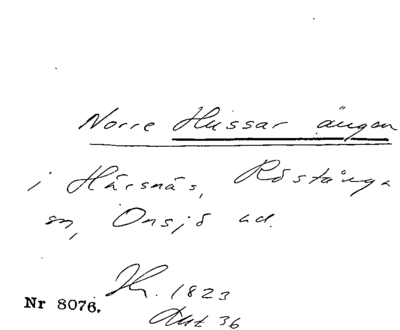 Norre Hussar ängen
i Härsnäs, Röstånga
sn, Onsjö hd.
Hr. 1823
Akt 36
Nr 8076.